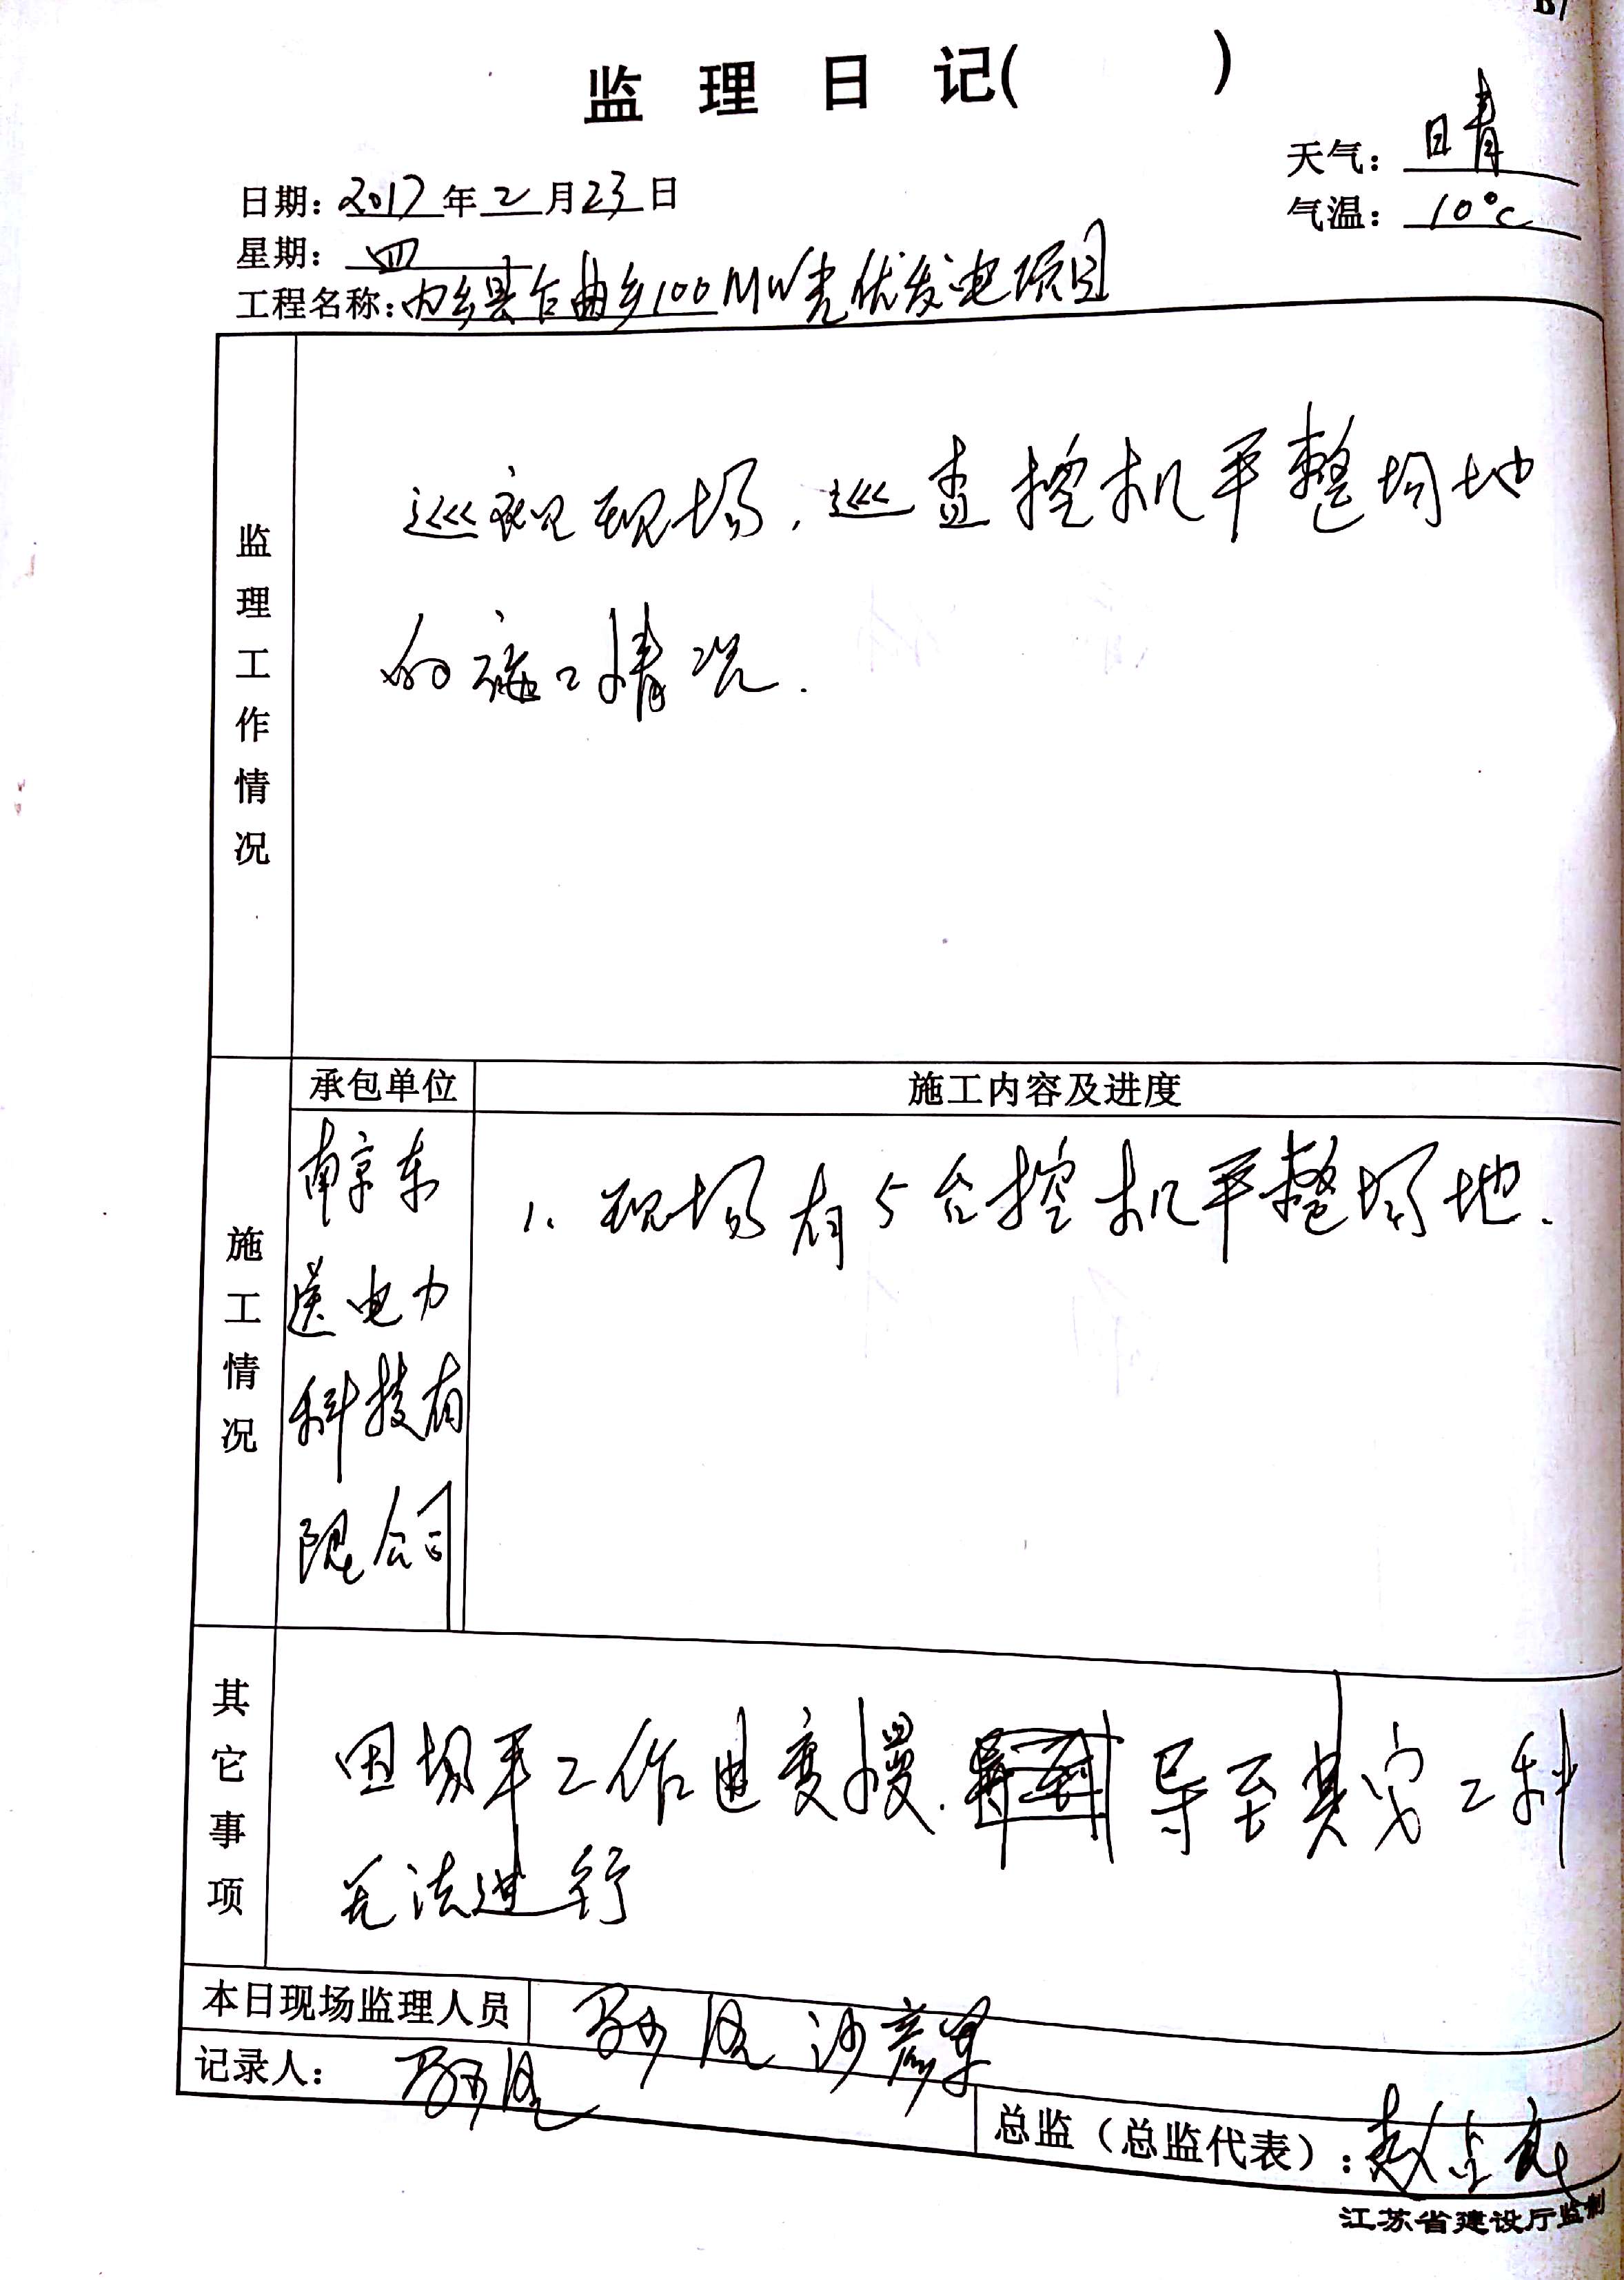 B7
监理日记( )
天气：晴
日期：2017年2月23日
气温：10℃
星期：四
工程名称：内乡县乍曲乡100MW光伏发电项目
监理工作情况
巡视现场，巡查挖机平整场地
的施工情况．
施工情况
承包单位
施工内容及进度
南京东
送电力
科技有
限公司
1、现场有5台挖机平整场地．
其它事项
因场平工作进度慢．导至其它工种
无法进行
本日现场监理人员
记录人：
总监（总监代表）：赵
江苏省建设厅监制